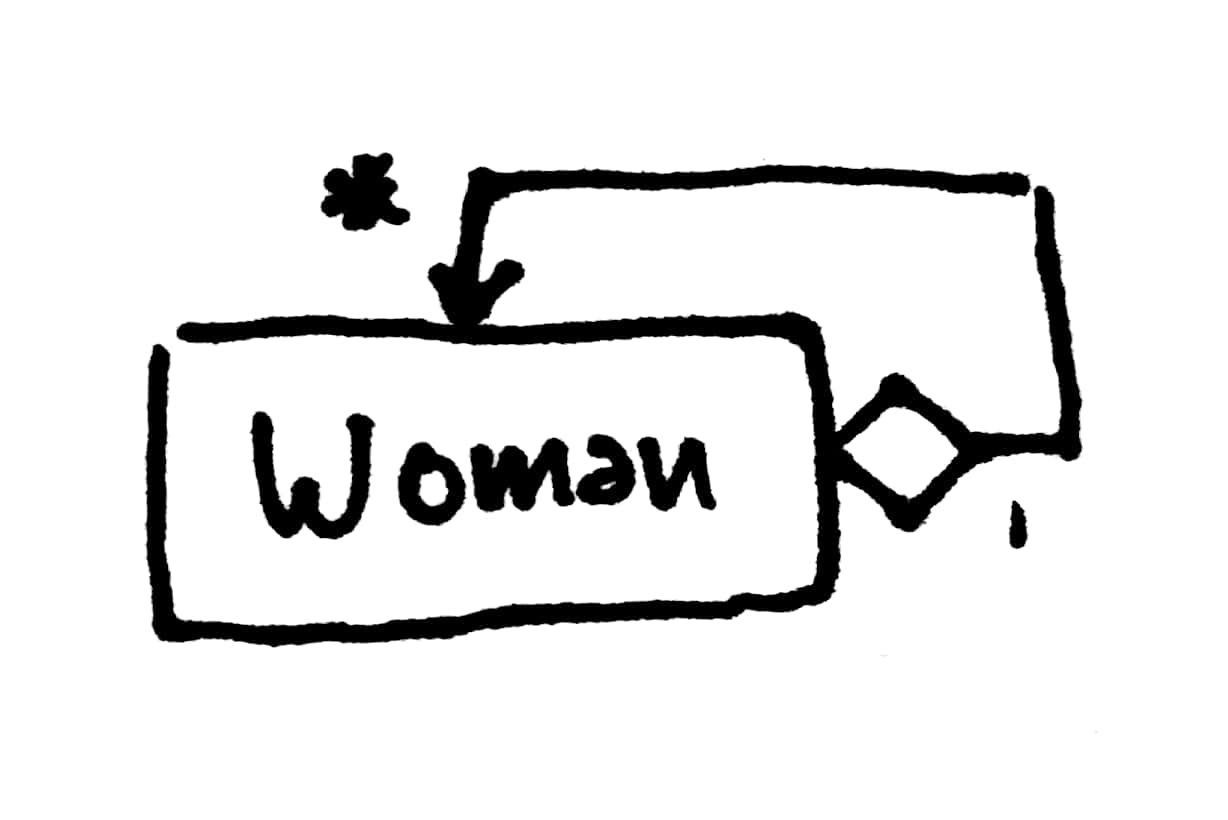 *
Woman
1